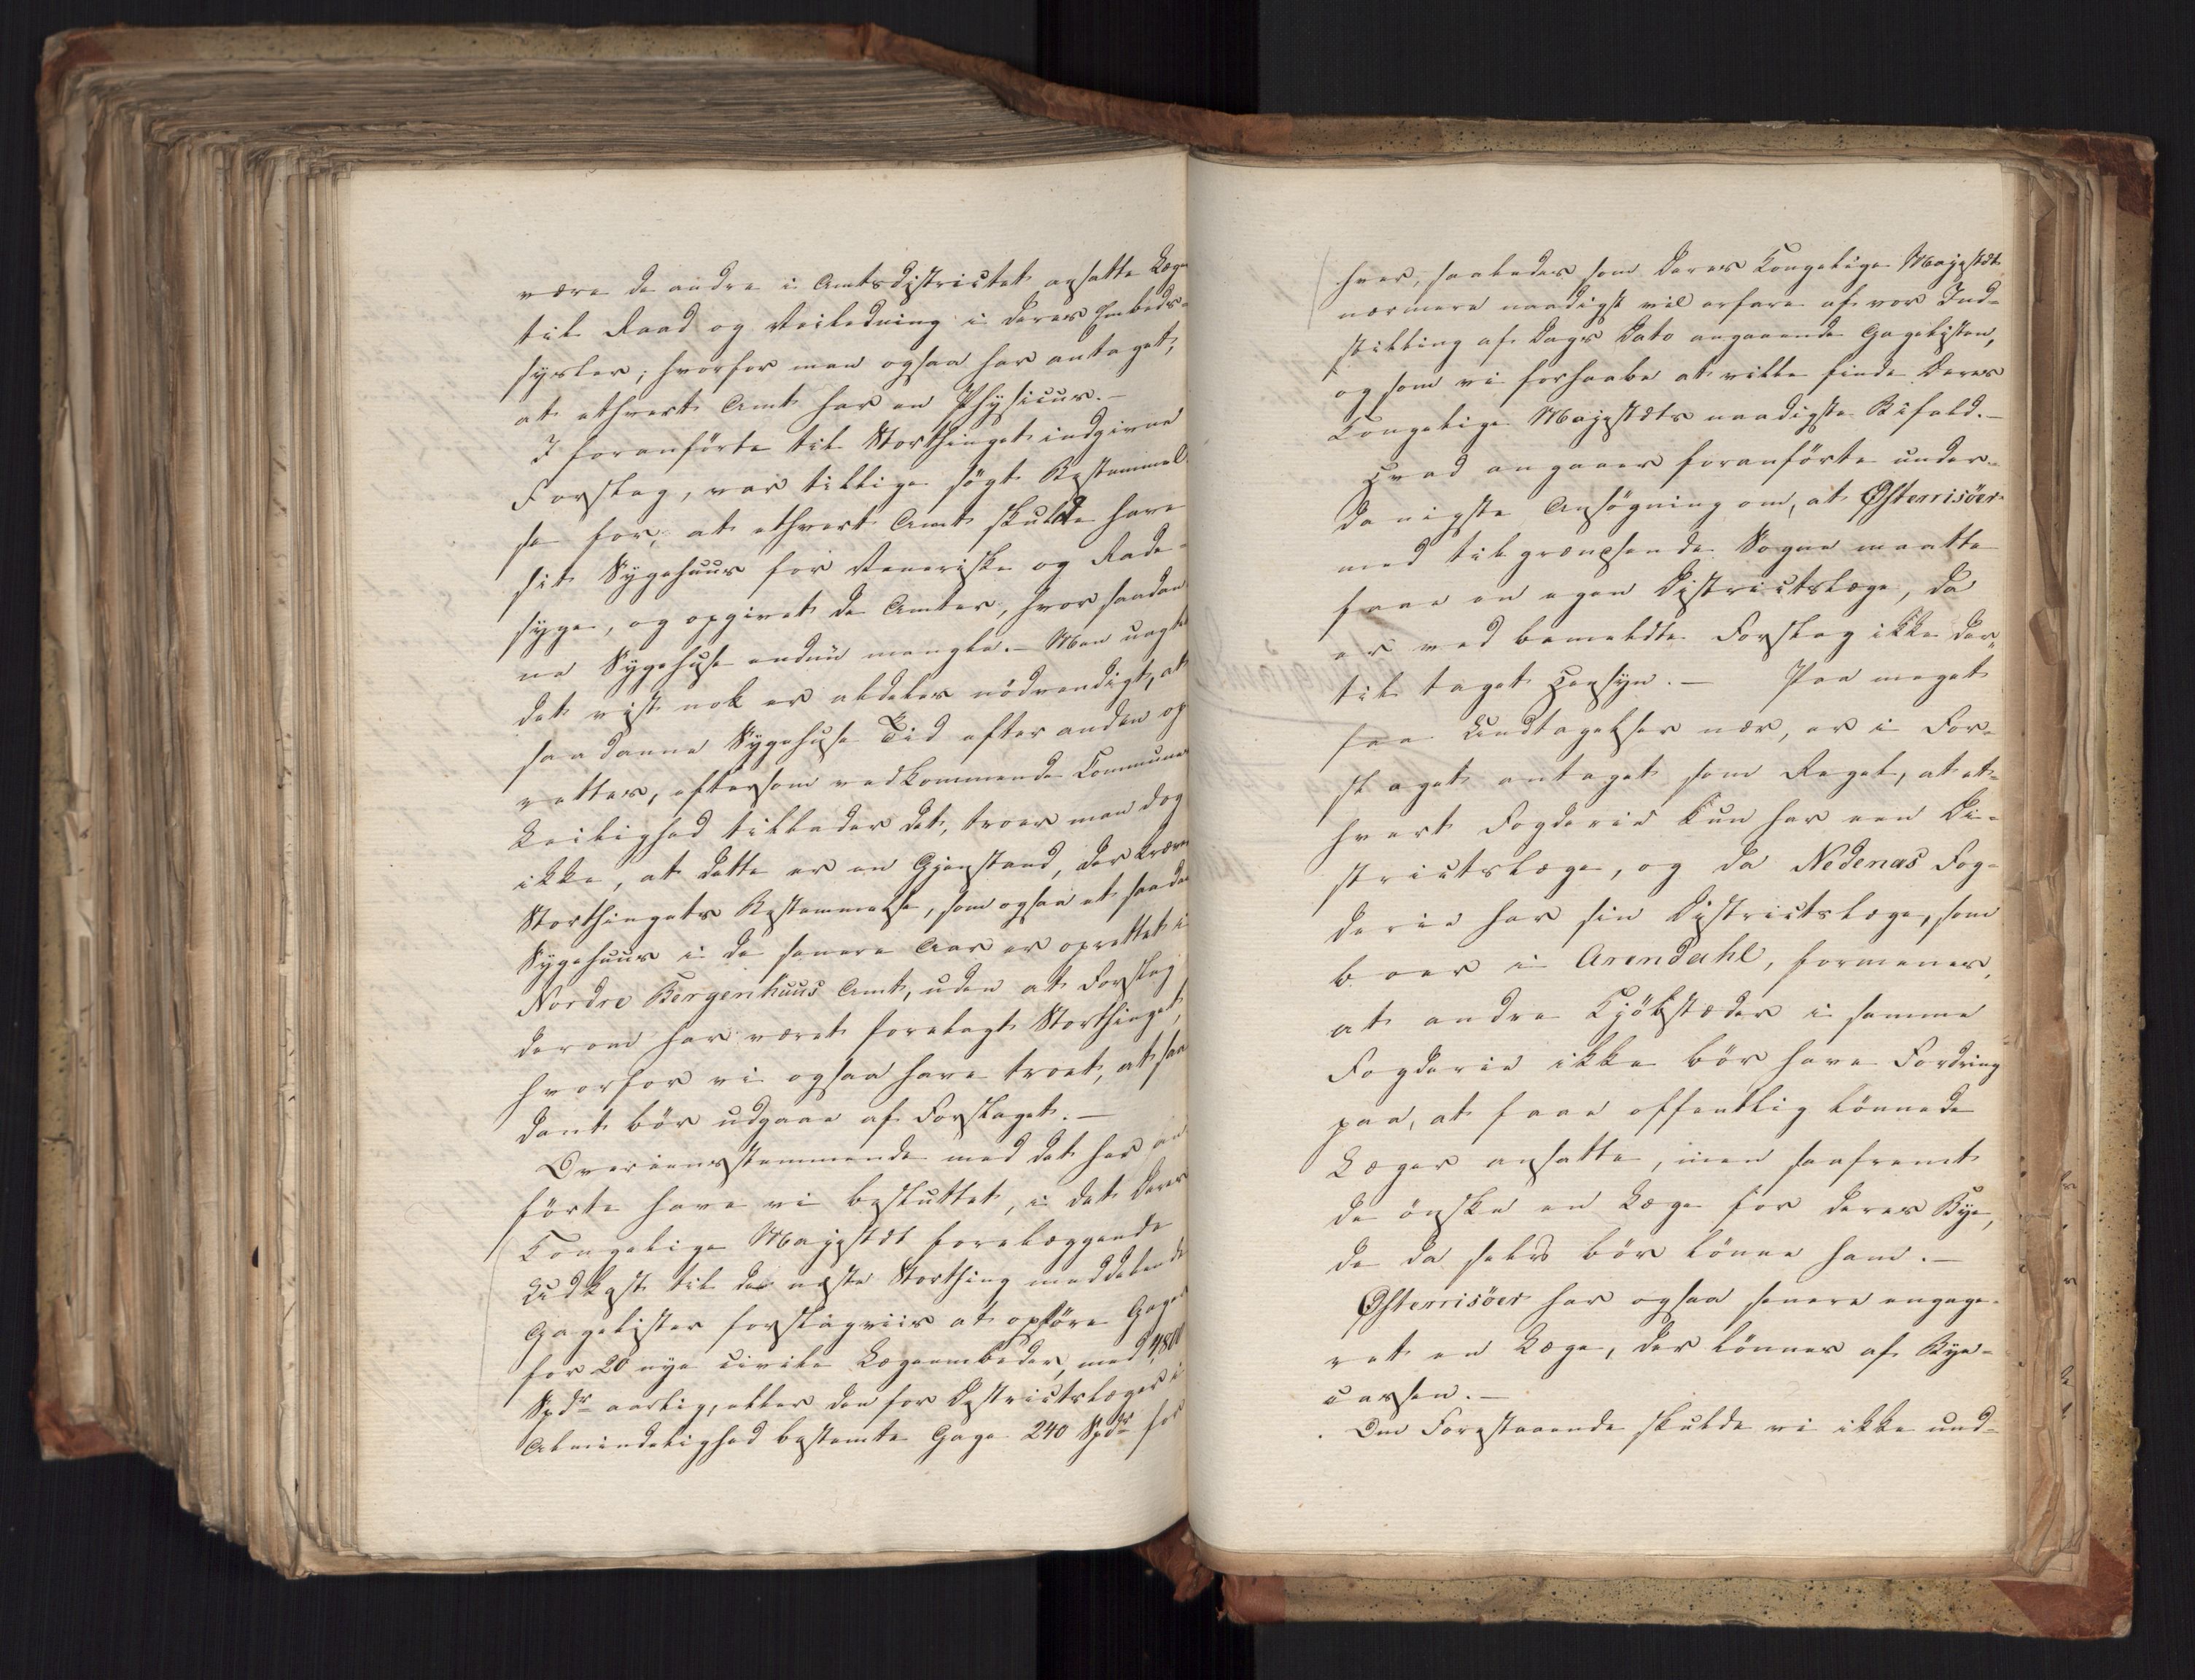 være de andre i Amtsdistrictet ansatte Læger
til Raad og Veiledning i deres Embeds-
sysler; hvorfor man ogsaa har antaget,
at ethvert Amt har en Physicus.-
I foranførte til Storthinget indgivne
Forslag, var tillige søgt Bestemmel-
se for, at ethvert Amt skulde have
sit Sygehuus for Veneriske og Rade-
syge, og opgivet de Amter, hvor saadan-
ne Sygehuse endnu mangle.- Men uagtet
det vist nok er aldeles nødvendigt, at
saadanne Sygehuse Tid efter anden op-
rettes, eftersom vedkommende Communes
Leilighed tillader det, troer man dog
ikke, at dette er en Gjenstand, der kræver
Storthingets Bestemmelse, som ogsaa et saadant
Sygehuus i de senere Aar er oprettet i
Nordre Bergenhuus Amt, uden at Forslag
derom har været forelagt Storthinget,
hvorfor vi ogsaa have troet, at saa-
dant bør udgaae af Forslaget.-
Overeensstemmende med det her an-
førte have vi besluttet, i det Deres
Kongelige Majestæt forelæggende
Udkast til det næste Storthing meddelende
Gagelister forslagviis at opføre Gager
for 20 nye civile Lægeembeder, med 4,800
Spdr aarlig, eller den for Districtslæger i
Almindelighed bestemte Gage 240 Spdr for
hver, saaledes som Deres Kongelige Majestæt
nærmere naadigst vil erfare af vor Ind-
stilling af Dags Dato angaaende Gagelisten,
og som vi forhaabe at ville finde Deres
Kongelige Majestæts naadigste Bifald.-
Hvad angaaer foranførte under-
danigste Ansøgning om, at Østerrisöer
med tilgrændsende Sogne maatte
faae en egen Districtslæge, da
er ved bemeldte Forslag ikke der-
til taget Hensyn.- Paa meget
faa Undtagelser nær, er i For-
slaget antaget som Regel, at et-
hvert Fogderie kun har een Di-
strictslæge, og da Nedenæs Fog-
derie har sin Districtslæge, som
boer i Arendahl, formenes,
at andre Kjøbstæder i samme
Fogderie ikke bør have Fordring
paa, at faae offentlig lønnede
Læger ansatte, men saafremt
de ønske en Læge for deres Bye,
de da selv bør lønne ham.-
Østerrisöer har ogsaa senere engage-
ret en Læge, der lønnes af Bye-
cassen.-
Om Forestaaende skulde vi ikke und-